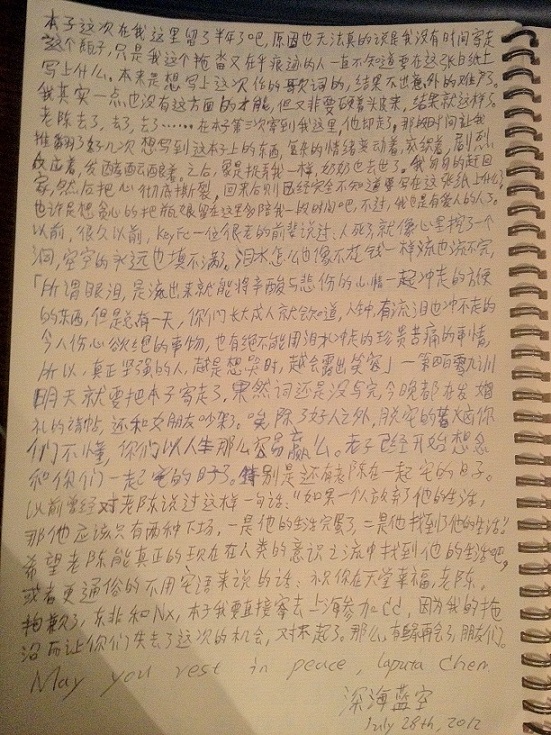 本子这次在我这里留了半年了吧,原因也无法真的说是我没有时间寄走
这个瓶子,只是我这个拖沓又存乎痕迹的人一直不知道要在这张白纸上
写上什么。本来是想写上这次作的歌词的,结果不出意外的难产了。
我其实一点也没有这方面的才能,但又非要硬着头皮来,结果就这样了。
老陈去了,去了,去了……在本子第三次寄到我这里,他却走了。那段时间让我
推翻了好几次想写到这本子上的东西,复杂的情绪变动着,交织着,剧烈
反应着,发酵着而又酝酿着。之后,像是抗拒我一样,奶奶也去世了。我匆匆的赶回
家,然后把心彻底撕裂,回来后则已经完全不知道要写在这张纸上什么。
也许是想贪心的把瓶娘留在这里多陪我一段时间吧,不过,我也是有爱人的人了。
以前,很久以前,KeyFC一位很老的前辈说过,人死了就像心里挖了一个
洞,空空的永远也填不满。泪水怎么也像不花钱一样流也流不完,
「所谓眼泪,是流出来就能将辛酸与悲伤的心情一起冲走的方便
的东西,但是总有一天,你们长大成人就会知道,人生中,有流泪也冲不走的
令人伤心欲绝的事物,也有绝不能用泪水冲走的珍贵苦痛的事情,
所以,真正坚强的人,越是想哭时,越会露出笑容」—第四百零九训
明天就要把本子寄走了,果然词还是没写完,今晚都在发婚
礼的请帖,还和女朋友吵架了。唉,除了好人之外,脱宅的苦恼你
们不懂,你们以人生那么容易赢么。老子已经开始想念
和你们一起宅的日子了。特别是还有老陈在一起宅的日子。
以前曾经对老陈说过这样一句话:“如果一个人放弃了他的生活,
那他应该只有两种下场,一是他的生活完蛋了,二是他找到了他的生活。”
希望老陈能真正的现在在人类的意识之流中找到他的生活吧,
或者更通俗的不用宅语来说的话:祝你在天堂幸福,老陈。
抱歉了,东非和Nx,本子我要直接寄去上海参加cd,因为我的拖
沓而让你们失去了这次的机会,对不起了。那么,有缘再会了,朋友们。
May you rest in peace, laputa chen
深海蓝空
July 28th, 2012